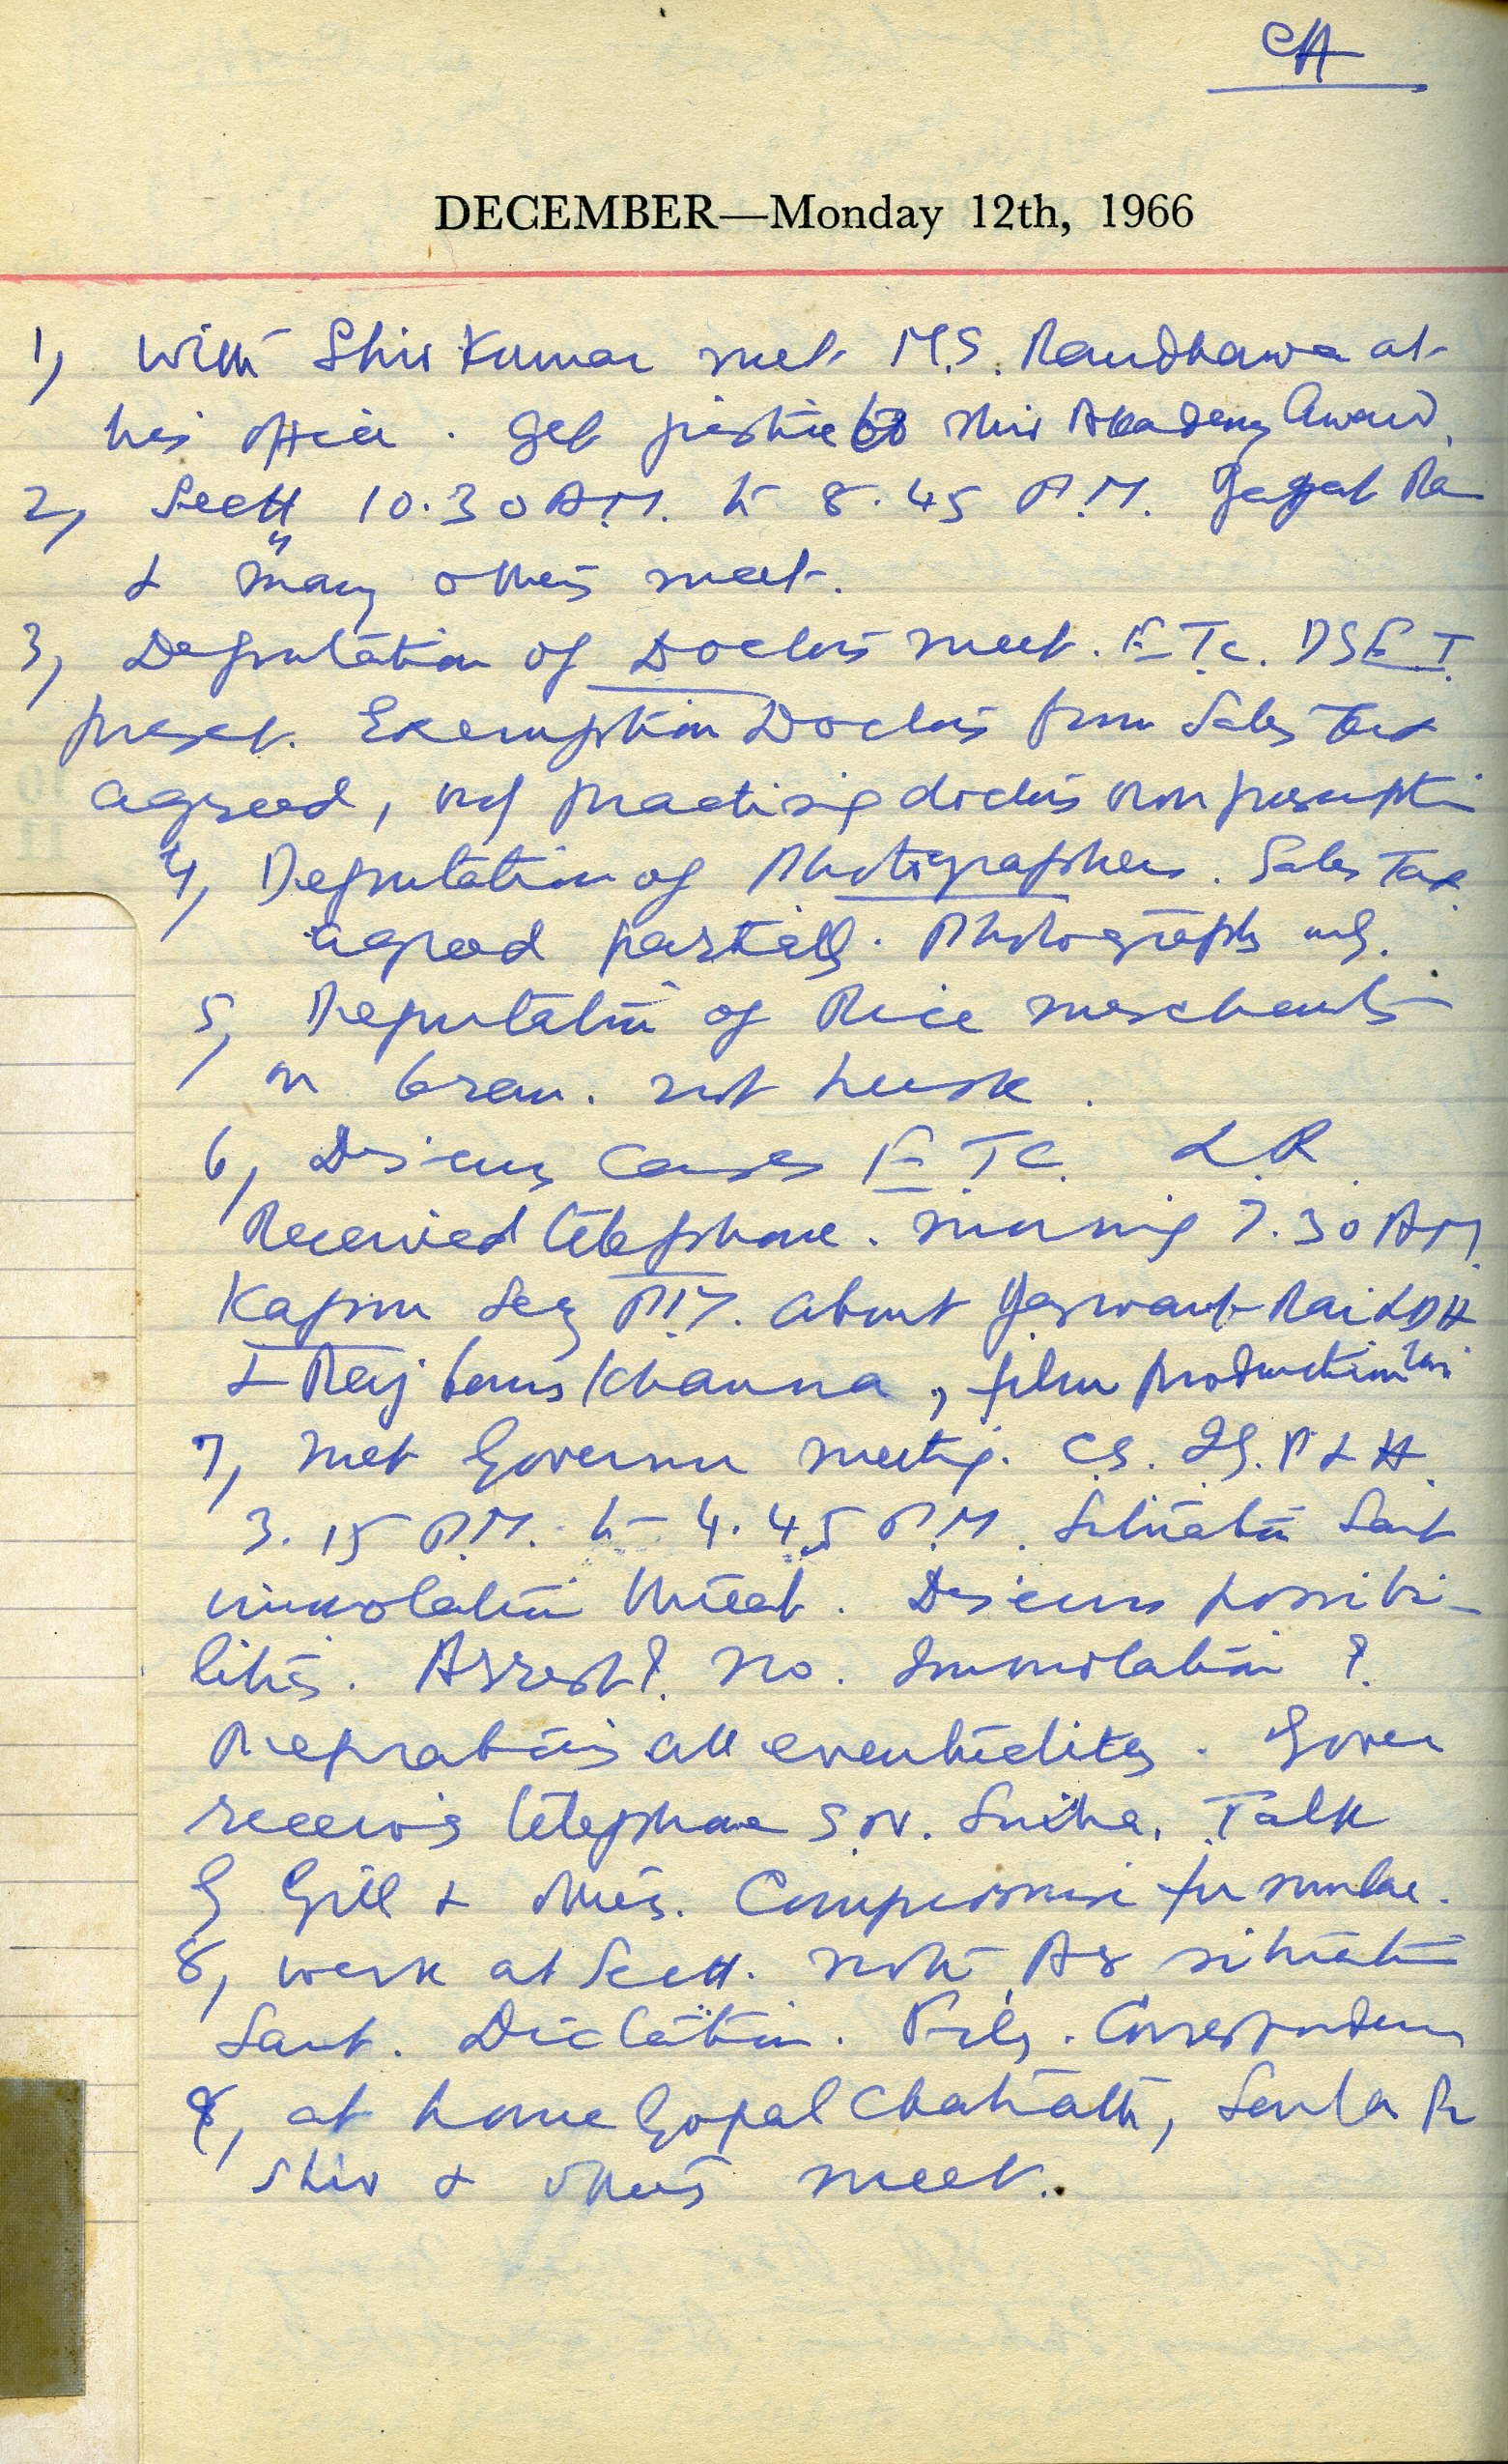 CH
DECEMBER—Monday 12th, 1966
1, With Shiv Kumar met M.S. Randhawa at
his office. Get justice to Shiv Akademy Award.
2, Sectt 10.30 A.M. to 8.45 P.M. Jagat Ra
& many others meet.
3, Deputation of Doctors meet. E.T.C. DSET
present. Exemption Doctors from Sales Tax
agreed, of practising doctors on
4, Deputation of Photographers. Sales Tax
agreed partially. Photographs only.
5, Deputation of Rice merchants
on bran. not husk.
6, Discuss cases E.T.C. L.R.
Received telephone. morning 7.30 AM.
Kapur Secy P.M. about Jaswant Rai LDH
& Raj bans Khanna, film production
7, Met Governor meeting. C.S. IG. P & H.
3.15 P.M. to 4.45 P.M. Situation Sant
immolation threat. Discuss possibi-
lities. Arrest? No. Immolation?
Preparations all eventualities. Gover
receives telephone Talk
G Gill & others. Compromise formulae.
8, work at Sectt. note, situation
Sant. Dictation. Files. Correspondence
8, at home Gopal Chatrath, R
Shiv & others meet.